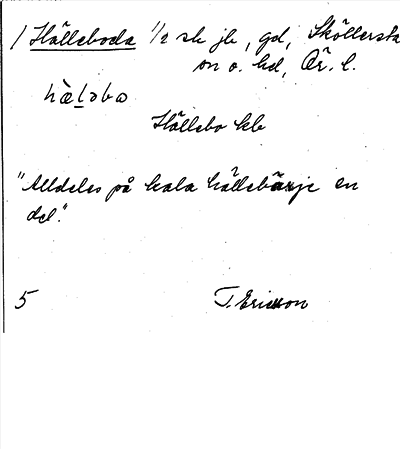 / Hälleboda 1/2 sk jb, gd, Sköllersta
sn o. hd, Ör. l.
hæ̀ləbo
Hällebo kb
"Alldeles på kala hällebärje en
del."
5 T. Ericsson